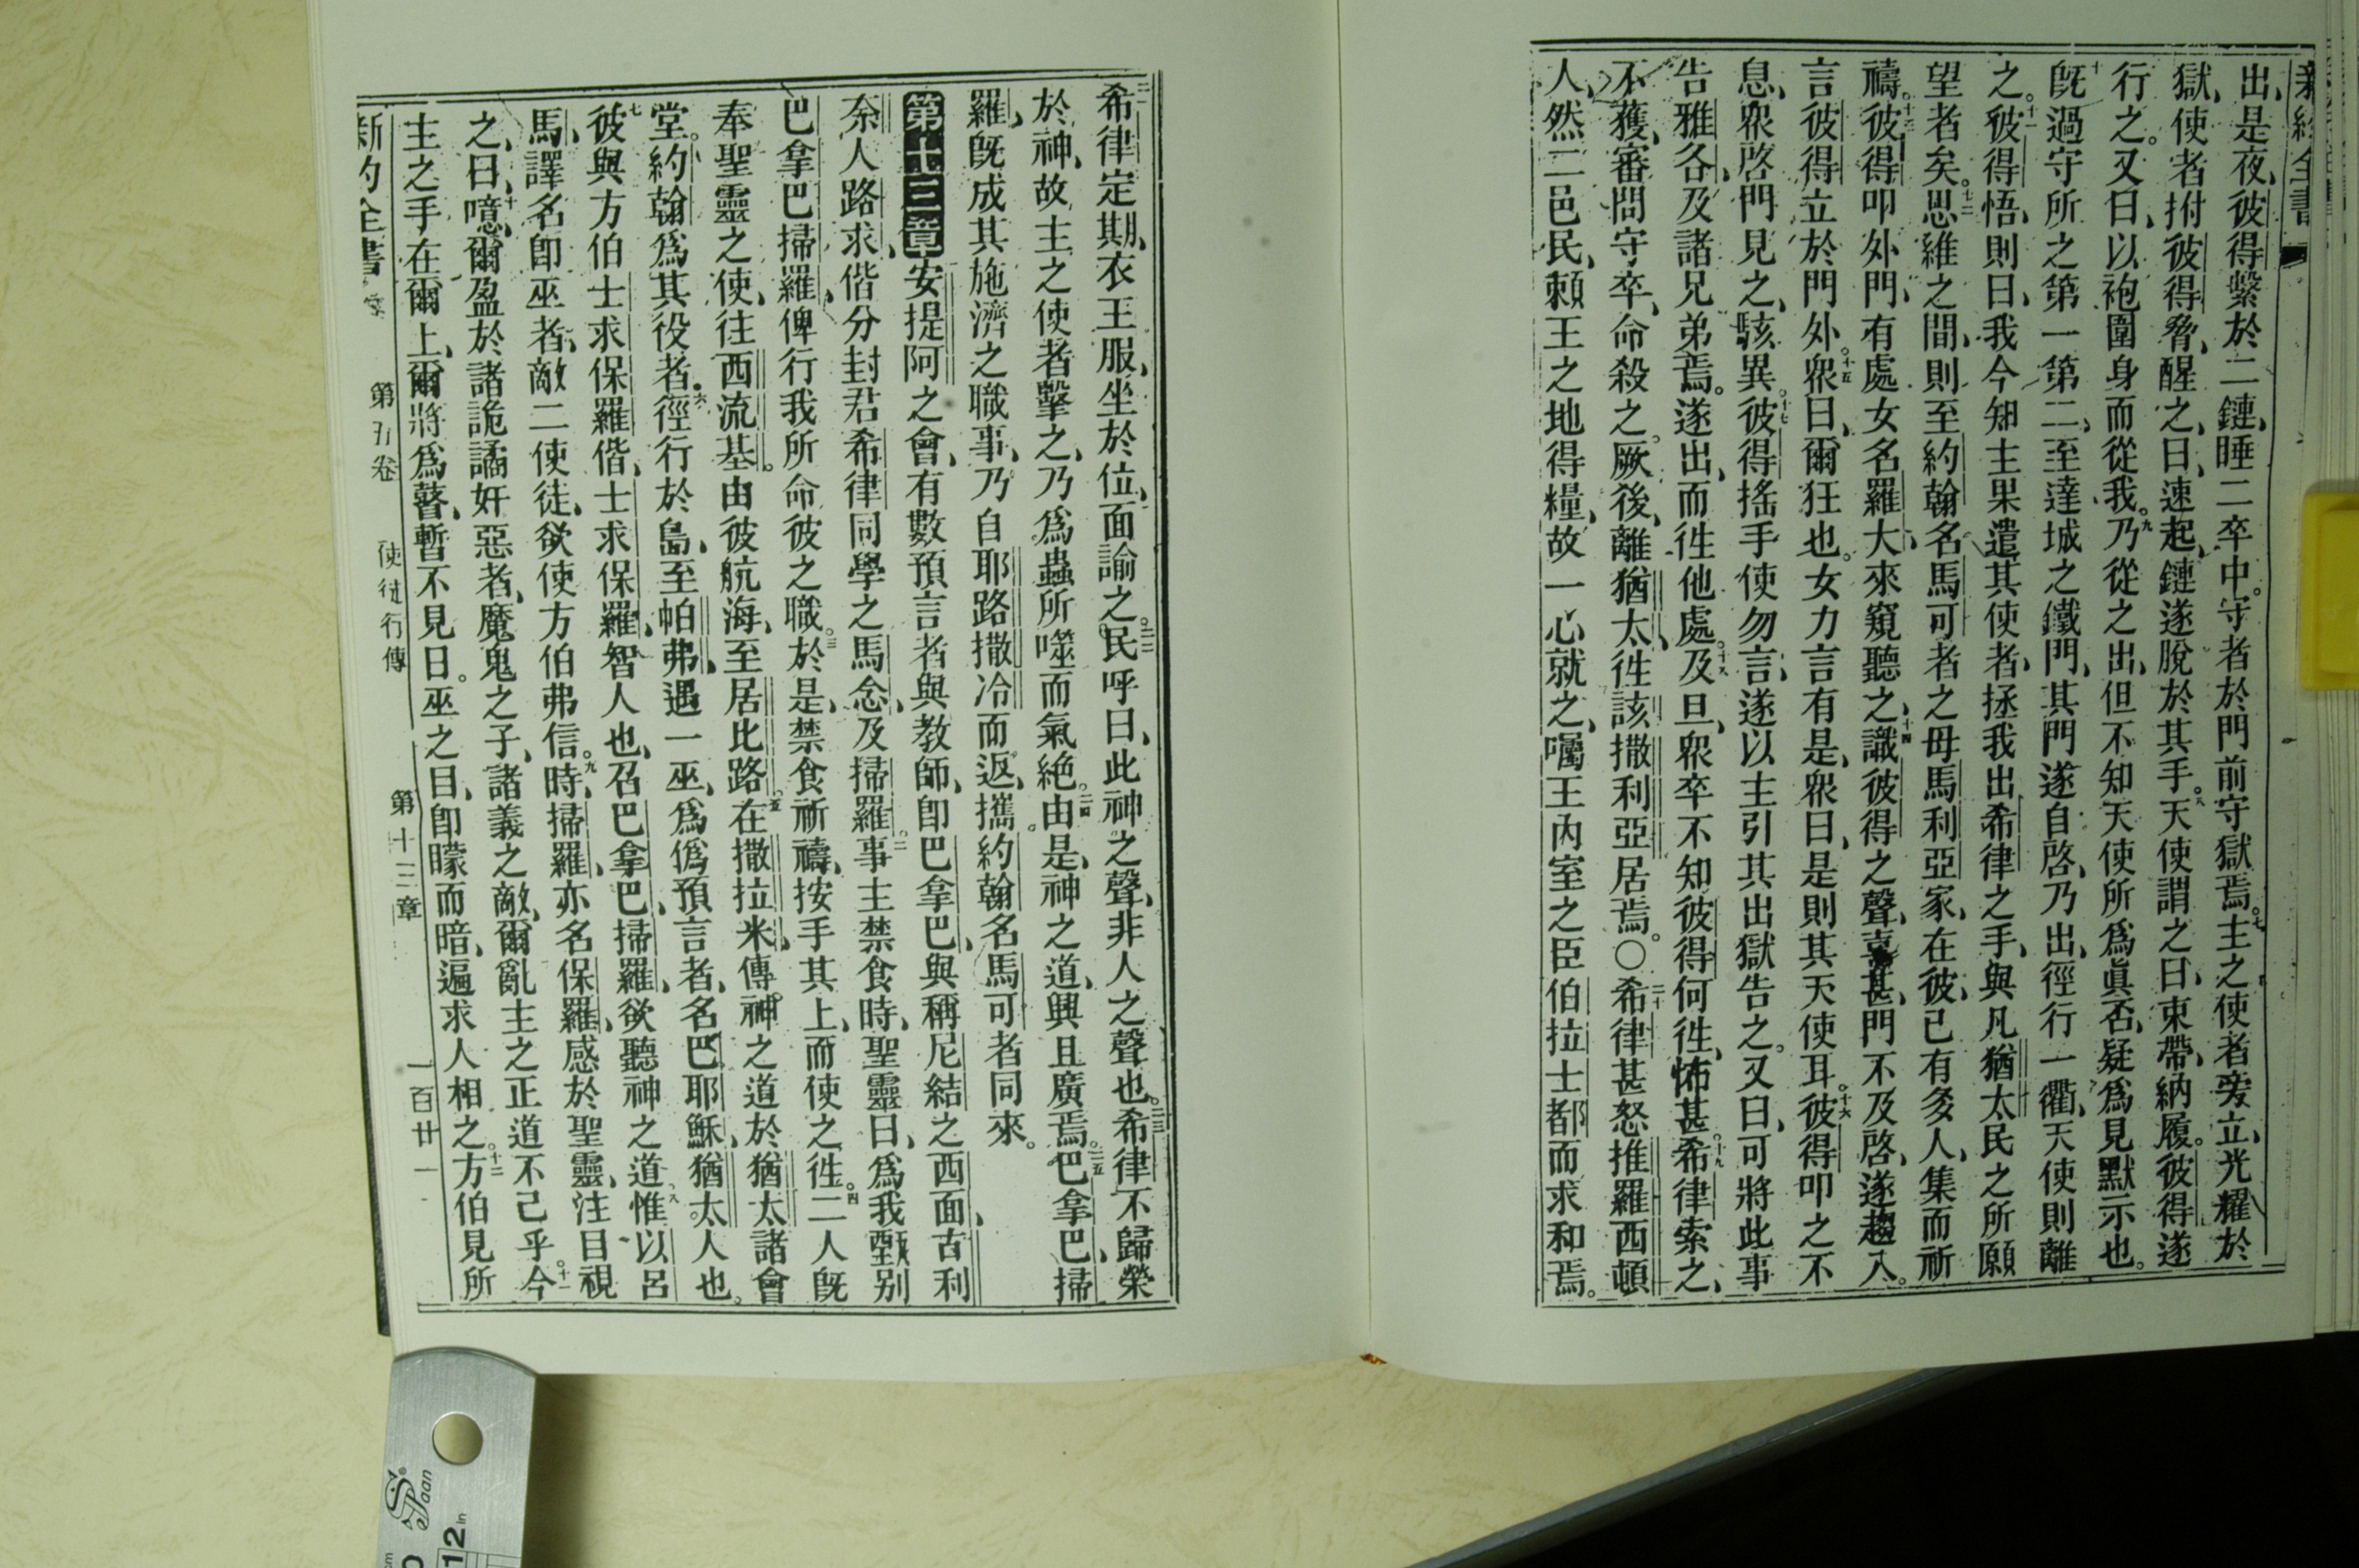 新約全書
出、是夜、彼得繫於二鏈、睡二卒中。守者於門前守獄焉。七主之使者旁立、光耀於
獄、使者拊彼得脅、醒之、曰、速起、鏈遂脫於其手。八天使謂之曰、束帶、納履。彼得遂
行之。又曰、以袍圍身而從我。九乃從之出、但不知天使所爲眞否、疑爲見默示也。
十旣過守所之第一第二、至達城之鐵門、其門遂自啓、乃出、徑行一衢、天使則離
之。十一彼得悟、則曰、我今知主果遣其使者、拯我出希律之手、與凡猶太民之所願
望者矣。十二思維之間、則至約翰名馬可者之母馬利亞家、在彼、已有多人、集而祈
禱。十三彼得叩外門、有處女名羅大、來窺聽之、十四識彼得之聲、喜甚、門不及啓、遂趨入。
言彼得立於門外。十五衆曰、爾狂也。女力言有是、衆曰、是則其天使耳。十六彼得叩之不
息、衆啓門見之、駭異。十七彼得搖手使勿言、遂以主引其出獄告之。又曰、可將此事
告雅各、及諸兄弟焉。遂出、而徃他處。十八及旦、衆卒不知彼得何徃、怖甚。十九希律索之、
不獲、審問守卒、命殺之。厥後、離猶太、徃該撒利亞居焉。○二十希律甚怒推羅西頓
人、然二邑民、賴王之地得糧、故一心就之、囑王內室之臣伯拉士都而求和焉。
二一希律定期、衣王服、坐於位、面諭之。二二民呼曰、此神之聲、非人之聲也。二三希律不歸榮
於神、故主之使者擊之、乃爲蟲所噬而氣絶。二四由是、神之道、興且廣焉。二五巴拿巴、掃
羅、旣成其施濟之職事、乃自耶路撒冷而返、攜約翰名馬可者同來。
第十三章安提阿之會、有數預言者與教師、卽巴拿巴、與稱尼結之西面、古利
奈人路求、偕分封君希律同學之馬念、及掃羅。二事主禁食時、聖靈曰、爲我甄别
巴拿巴掃羅、俾行我所命彼之職。三於是、禁食祈禱、按手其上、而使之徃。四二人旣
奉聖靈之使、往西流基。由彼航海、至居比路。五在撒拉米、傳神之道於猶太諸會
堂。約翰爲其役者。六徑行於島、至帕弗、遇一巫、爲僞預言者、名巴耶穌、猶太人也。
七彼與方伯士求保羅偕、士求保羅、智人也、召巴拿巴、掃羅、欲聽神之道、八惟以呂
馬、譯名卽巫者、敵二使徒、欲使方伯弗信。九時、掃羅、亦名保羅、感於聖靈、注目視
之、曰、十噫、爾盈於諸詭譎奸惡者、魔鬼之子、諸義之敵、爾亂主之正道不已乎。十一今
主之手在爾上、爾將爲瞽、暫不見日。巫之目、卽矇而暗、遍求人相之。十二方伯見所
新約全書 第五卷 使徒行傳 第十三章 一百廿一
Jaan
12 in
cm